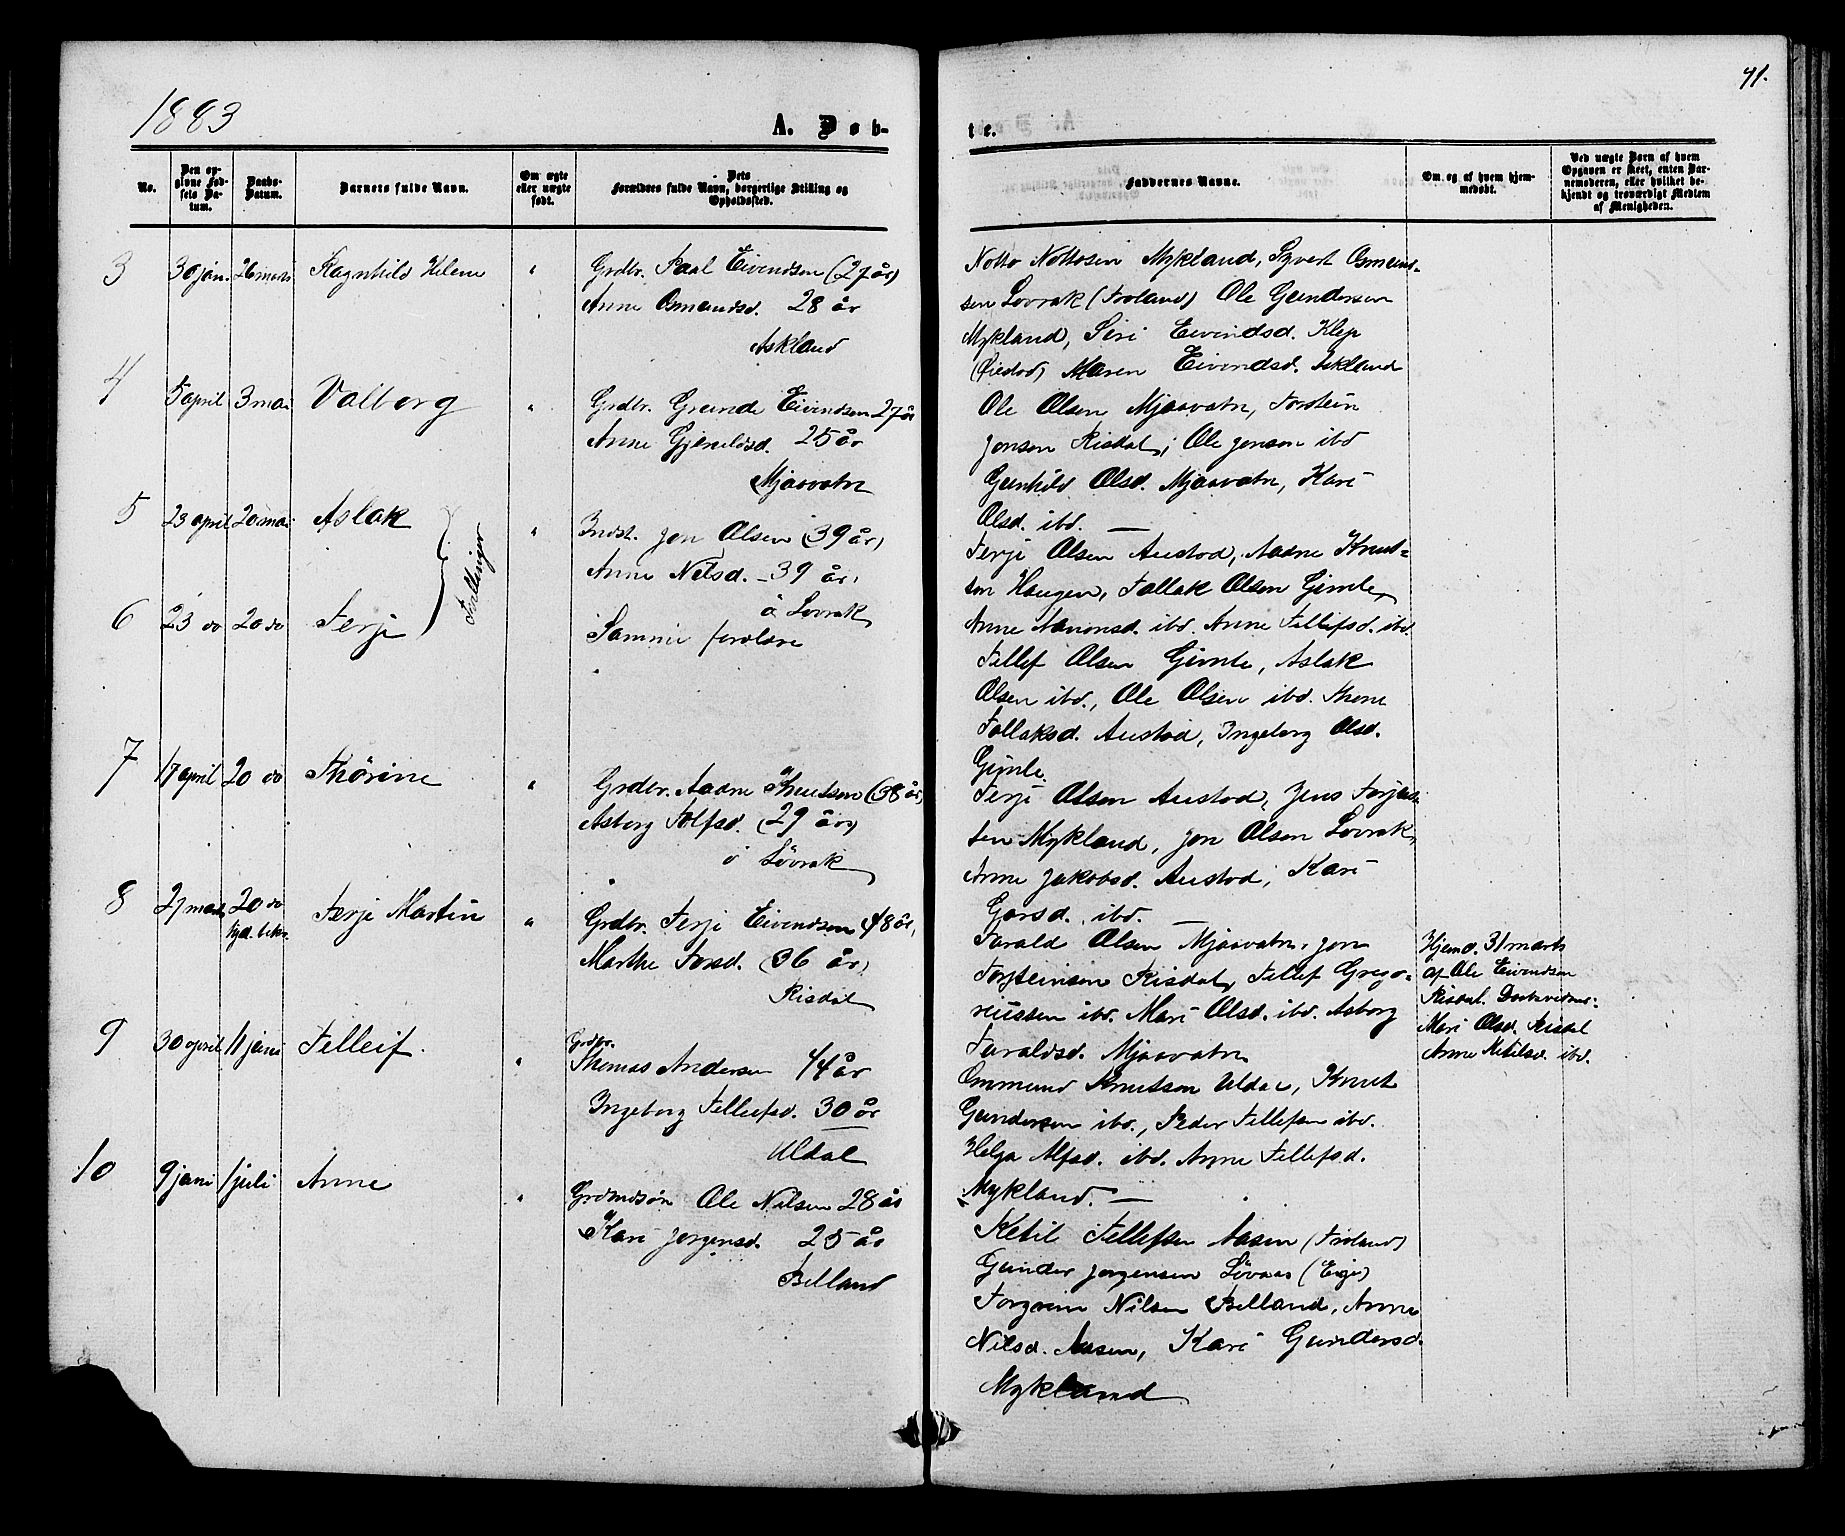 1883
A. Døb-
te.
41.
No.
Den op-
givne Fød-
sels Da-
tum.
Daabs-
Datum.
Barnets fulde Navn.
Om ægte
eller uægte
født.
Dets
Forældres fulde Navn, borgerlige Stilling og
Opholdssted.
Faddernes Navne.
Om og af hvem hjem-
medøbt.
Ved uægte Børn af hvem
Opgaven er skeet, enten Bar-
nemoderen, eller hvilket be-
kjendt og troværdigt Medlem
af Menigheden.
3 30 jan. 26 marts Ragnhild Helene " Grdbr. Paal Eivendsen (27 år)
Anne Osmundsd. 28 år
Askland
Notto Nottosen Mykland, Syvert Osmund-
sen Lovrak (Froland) Ole Gundersen
Mykland, Siri Eivindsd. Klep
(Øiestad) Maren Eivendsd. Askland
4 5 april 3 mai Valborg " Grdbr. Grunde Eivendsen 27 år
Anne Gjerulvsd. 25 år
Mjaavatn
Ole Olsen Mjaavatn, Torstein
Jonsen Risdal, Ole Jonsen ibd
Gunhild Olsd. Mjaavatn, Kari
Olsd. ibd. —
5 23 april 20 mai Aslak " Indst. Jon Olsen (39 år)
Tvillinger
Anne Nelsd. - 39 år.
å Lovrak
Terje Olsen Austad, Aadne Knut-
son Haugen, Tallak Olsen Gimle,
Anne Aanonsd. ibd. Anne Tellefsd. ibd.
6 23 do 20 do Terje
Samme forældre
Tellef Olsen Gimle, Aslak
Olsen ibd., Ole Olsen ibd. Thone
Tallaksd. Austad, Ingeborg Olsd.
Gimle.
7 17 april 20 do Thorine " Grdbr. Aadne Knutsen (38 år)
Asborg Tolfsd. (29 år)
å Lövrak
Terje Olsen Austad, Jens Torjus-
sen Mykland, Jon Olsen Lovrak,
Anne Jakobsd. Austad, Kari
Garsd. ibd. —
8 27 marts 20 do Terje Martin " Grdbr. Terje Eivendsen 48 år,
Marthe Torsd. (36 år)
Risdal
Tarald Olsen Mjaavatn, Jon
Torsteinsen Risdal, Tellef Grego-
riussen ibd. Mari Olsd. ibd. Asborg
Taraldsd. Mjaavatn
Hjemd. 31 marts
af Ole Eivendsen
Risdal. Daabsvidner:
Mari Olsd. Risdal
Anne Ketilsd. ibd.
9 30 april 11 juni Telleif. " Grdbr.
Thomas Andersen 44 år
Ingeborg Tellefsd. 30 år
Uldal
Ommund Knutsson Uldal, Knut
Gundersen ibd., Peder Tellefsen ibd.
Helga Alfsd. ibd. Anne Tellefsd.
Mykland. —
10 9 juni 1 juli Anne " Grdmdsøn Ole Nilsen 28 år
Kari Jorgensd. 25 år
Belland
Ketil Tellefsen Aasen (Froland)
Gunder Jorgensen Lövaas (Eige)
Torgrim Nilsen Belland, Anne
Nilsd. Aasen, Kari Gundersd.
Mykland